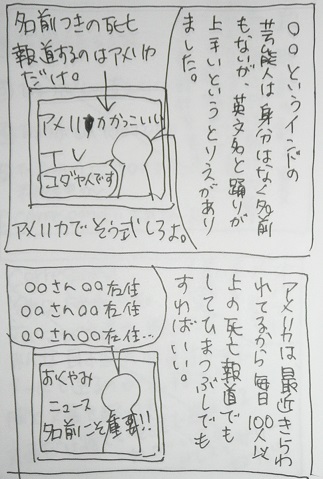 ○○というインドの
芸能人は身分はなく名前
もないが、英文名と踊りが
上手いというとりえがあり
ました。
名前つきの死亡
報道するのはアメリカ
だけ。
アメリカかっこいい
ユダヤ人です
アメリカでそう式しろよ。
アメリカは最近きらわ
れてるから毎日100人以
上の死亡報道でも
してひまつぶしでも
すればいい。
○○さん○○在住
○○さん○○在住
○○さん○○在住…
おくやみ
ニュース
名前にこそ重要!!